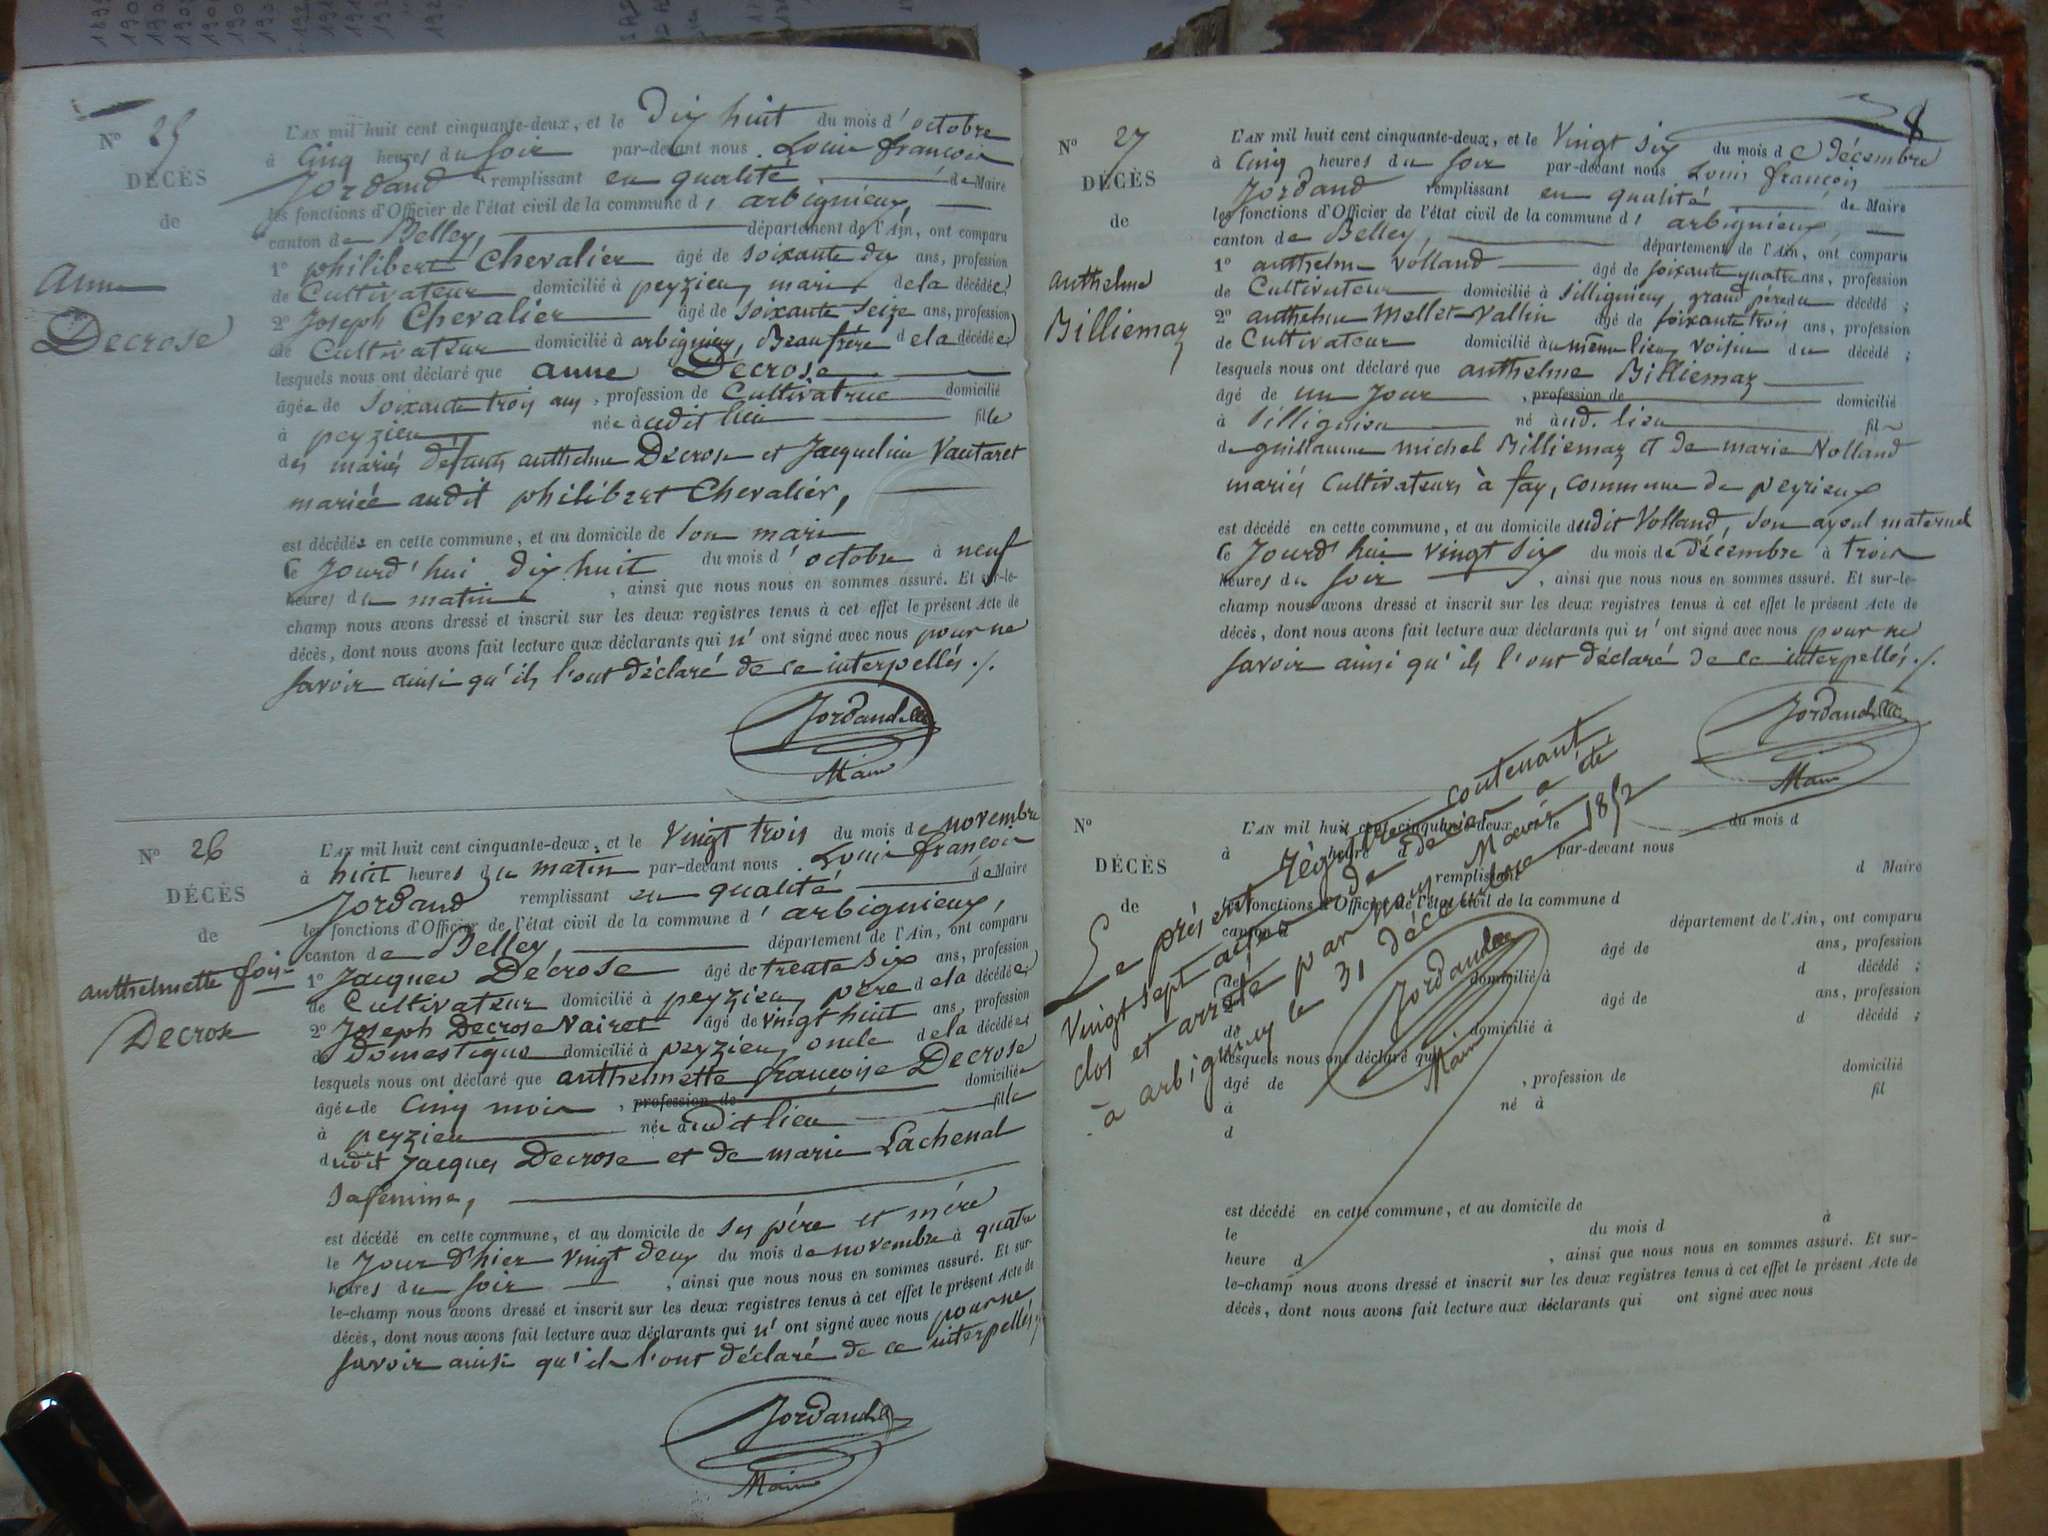 N° 25
DÉCÈS
de
Anne
Decrose
L'AN mil huit cent cinquante-deux, et le Dix huit du mois d'octobre
à Cinq heures du soir par-devant nous Louis françois
Jordand remplissant en qualité de Maire
les fonctions d'Officier de l'état civil de la commune d'arbignieux,
canton de Belley, département de l'Ain, ont comparu
1° philibert Chevalier âgé de soixante dix ans, profession
de Cultivateur domicilié à peyzieu, mari de la décédée;
2° Joseph Chevalier âgé de soixante seize ans, profession
de Cultivateur domicilié à arbignieux, Beaufrère de la décédée;
lesquels nous ont déclaré que anne Decrose
âgée de soixante trois ans, profession de Cultivatrice domicilié
à peyzieu née audit lieu fille
des mariés défunts anthelme Décrose et Jacqueline Vautaret
mariée audit philibert Chevalier,
est décédée en cette commune, et au domicile de son mari
le Jourd'hui dix huit du mois d'octobre à neuf
heures du matin, ainsi que nous nous en sommes assuré. Et sur-le-
champ nous avons dressé et inscrit sur les deux registres tenus à cet effet le présent Acte de
décès, dont nous avons fait lecture aux déclarants qui n'ont signé avec nous pour ne
savoir ainsi qu'ils l'ont déclaré de ce interpellés ./.
Jordand
Maire
N° 26
DÉCÈS
de
anthelmette foise
Decrose
L'AN mil huit cent cinquante-deux, et le Vingt trois du mois de novembre
à huit heures du matin par-devant nous Louis françois
Jordand remplissant en qualité de Maire
les fonctions d'Officier de l'état civil de la commune d'arbignieux,
canton de Belley, département de l'Ain, ont comparu
1° Jacques Decrose âgé de trente six ans, profession
de Cultivateur domicilié à peyzieu, père de la décédée;
2° Joseph Decrose Nairet âgé de vingt huit ans, profession
de Domestique domicilié à peyzieu, oncle de la décédée;
lesquels nous ont déclaré que anthelmette françoise Decrose
âgée de Cinq mois, profession de domiciliée
à peyzieu née audit lieu fille
dudit Jacques Decrose et de marie Lachenal
sa femme,
est décédé en cette commune, et au domicile de ses père et mère
le Jour D'hier vingt deux du mois de novembre à quatre
heures du soir, ainsi que nous nous en sommes assuré. Et sur-
le-champ nous avons dressé et inscrit sur les deux registres tenus à cet effet le présent Acte de
décès, dont nous avons fait lecture aux déclarants qui n'ont signé avec nous pour ne
savoir ainsi qu'ils l'ont déclaré de ce interpellés ./.
Jordand
Maire
8
N° 27
DÉCÈS
de
anthelme
Billiemaz
L'AN mil huit cent cinquante-deux, et le Vingt six du mois de décembre
à Cinq heures du soir par-devant nous Louis françois
Jordand remplissant en qualité de Maire
les fonctions d'Officier de l'état civil de la commune d'arbignieux,
canton de Belley, département de l'Ain, ont comparu
1° anthelme Volland âgé de soixante quatre ans, profession
de Cultivateur domicilié à Sillignieu, grand père du décédé;
2° anthelme Mellet-Vallin âgé de soixante trois ans, profession
de Cultivateur domicilié au même lieu, voisin du décédé;
lesquels nous ont déclaré que anthelme Billiemaz
âgé de un Jour, profession de domicilié
à Sillignieu né aud. lieu fils
de guillaume michel Billiemaz et de marie Volland
mariés Cultivateurs à fay, commune de peyrieux
est décédé en cette commune, et au domicile dudit Volland, son ayoul maternel
le Jourd'hui vingt six du mois de décembre à trois
heures du soir, ainsi que nous nous en sommes assuré. Et sur-le-
champ nous avons dressé et inscrit sur les deux registres tenus à cet effet le présent Acte de
décès, dont nous avons fait lecture aux déclarants qui n'ont signé avec nous pour ne
savoir ainsi qu'ils l'ont déclaré de ce interpellés ./.
Jordand
Maire
N°
DÉCÈS
de
L'AN mil huit cent cinquante-deux, et le du mois d
à heure d par-devant nous
remplissant d Maire
les fonctions d'Officier de l'état civil de la commune d
canton d département de l'Ain, ont comparu
1° âgé de ans, profession
de domicilié à d décédé;
2° âgé de ans, profession
de domicilié à d décédé;
lesquels nous ont déclaré que
âgé de , profession de domicilié
à né à fil
d
est décédé en cette commune, et au domicile de
le du mois d à
heure d , ainsi que nous nous en sommes assuré. Et sur-
le-champ nous avons dressé et inscrit sur les deux registres tenus à cet effet le présent Acte de
décès, dont nous avons fait lecture aux déclarants qui ont signé avec nous
Le présent Régistre contenant
vingt sept actes de décès a été
clos et arrêté par Nous Maire
à arbignieux le 31 décembre 1852
Jordand
Maire